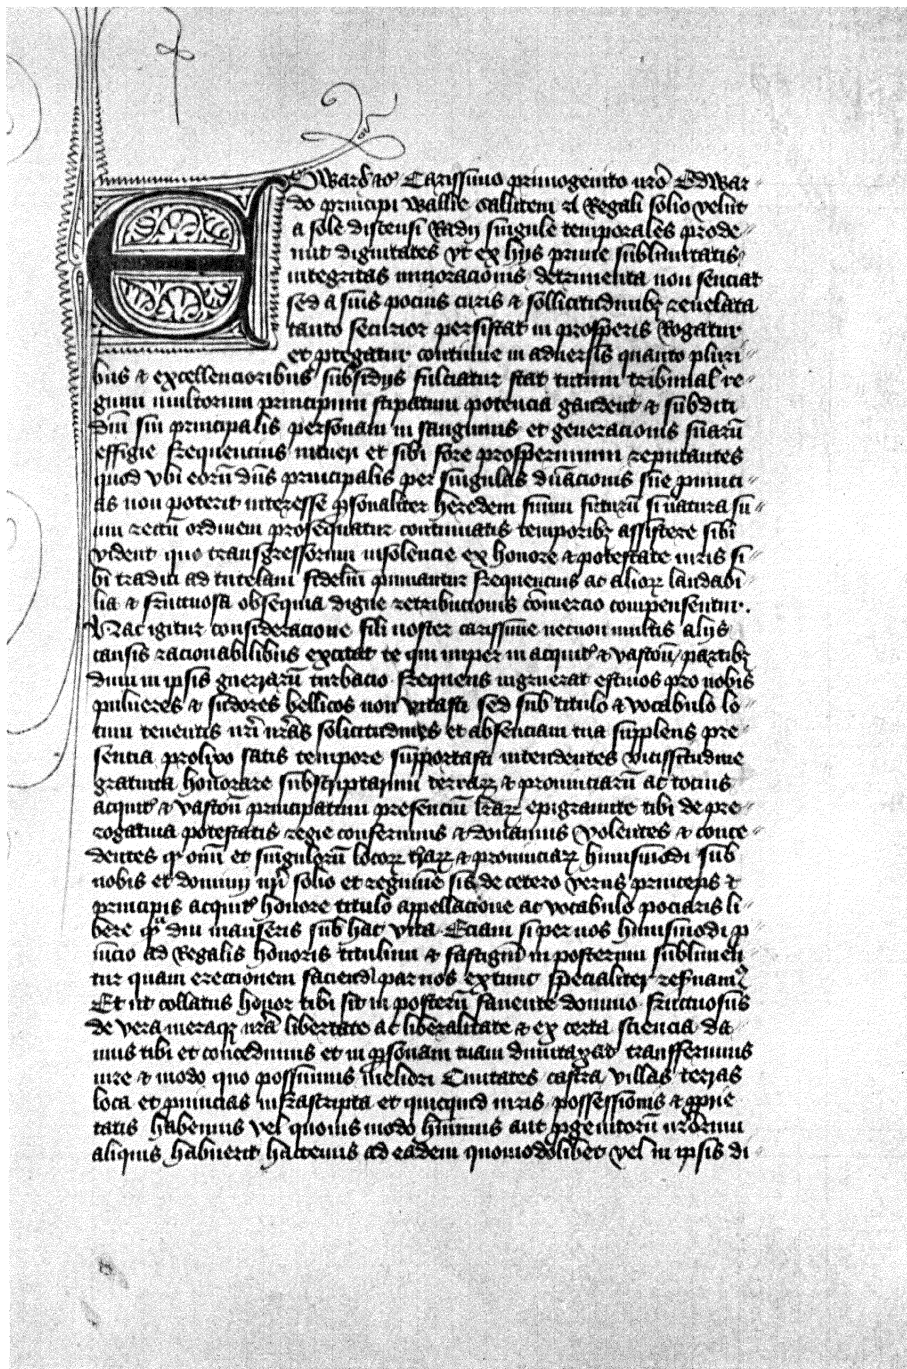 Edward9 &c9 Carissimo primogenito nr̄o Edwar
do principi Wallie Sal̄litem A Regali solio velut
a sole distensi Radij singule temporales prode
unt dignitates vt ex hijs prime sublimitatis
integritas minoracionis detrimenta non senciat
sed a suis pocius curis & sollicitudinibȝ revelata
tanto securior persistat in prosperis Rogatur
et protegatur continue in adversis quanto pluri
bus & excellencioribus subsidijs fulciatur stat tutum tribunal re
gium multorum principum stipatum potencia gaudent & subditi
dum sui principalis personam in sanguinis et generacionis suarū
effigie frequencius intueri et sibi fore prosperrimum reputantes
quod vbi eorū dn̄s principalis per singulas dn̄acionis sue provinci
as non poterit interesse ꝑsonaliter heredem suum futurū si natura su
um rectū ordinem prosequatur continuatis temporibȝ assistere sibi
vident quo transgressorum insolencie ex honore & potestate iuris si
bi traditi ad tutelam fideliū puniantur frequencius ac alioꝝ laudabi
lia & fructuosa obsequia digne retribucionis cōmercio compensentur.
Hac igitur consideracione fili noster carissime necnon multis alijs
causis racionabilibus excitati te qui nuper in acquit̄ & vascoñ partibȝ
dum in ipsis guerrarū turbacio frequens ingruerat estivos pro nobis
pulveres & sudores bellicos non vitasti sed sub titulo & vocabulo lo
cum tenentis nr̄i nr̄as solicitudines et absenciam tua supplens pre
sentia prolixo satis tempore supportasti intendentes vicissitudine
gratuita honorare substriptarum terraꝝ & provinciarū ac tocius
acquit̄ & vascoñ principatum presenciū lr̄aꝝ epigramate tibi de pre
rogativa potestatis regie conferimus & donamus volentes & conce
dentes qd̄ om̄i et singulorū locoꝝ tr̄aꝝ & provinciaꝝ huiusmodi sub
nobis et dominij nr̄i solio et regimine sis de cetero verus princeps &
principis acquit̄ honore titulo appellacione ac vocabulo pociaris li
bere qᵃm diu manseris sub hac vita Eciam si per nos huiusmodi ꝓ
vincio ad Regalis honoris titulum & fastigiū in posterum sublimen
tur quam ereccionem faciendam per nos extunc specialiter res'vamꝰ
Et ut collatus honor tibi sit in posterū favente domino fructuosus
de vera meraqꝫ nr̄a libertate ac liberalitate & ex certa sciencia da
mus tibi et concedimus et in ꝑsonam tuam dumtaxat transfferimus
iure & modo quo possumus meliori Civitates castra villas terras
loca et ꝓvincias infrascripta et quicquid iuris possessionis & ꝓprie
tatis habemus vel quovis modo hūimus aut ꝓgenitorū nr̄orum
aliquis habuerit hactenus ad eadem quomodolibet vel in ipsis di